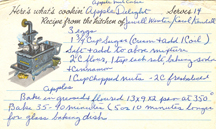 Apple
Here's what's cookin' Apple Delight Serves 14
Recipe from the kitchen of Jewell
3 eggs
1 3/4 Cup Sugar (Cream + add 1 C oil)
Sift + add to above mixture
2 C flour, 1 tsp each salt, baking soda
+ Cinnamon
1 Cup chopped Nuts - 2 C fresh sliced
Apples
Bake in greased + floured 13x9x2 pan at 350°
Bake 35-40 minutes (5 or 10 minutes longer
for glass baking dish